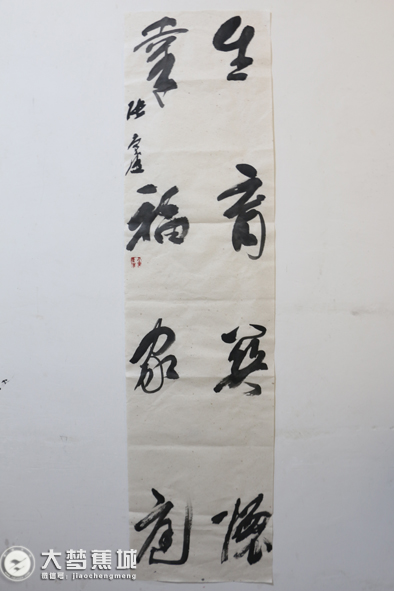 生育关懷
幸福家庭
张
大梦蕉城
jiaochengmeng